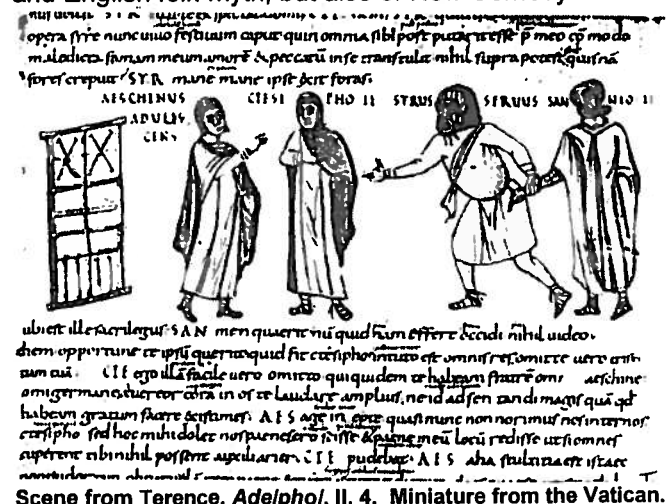 and English folk-myth, but also of New Comedy
S Y R
opera nunc uiuo festiuum caput quin omnia sibi post esse p meo cp modo
maledicta famam meum amorē & peccatū inse transtulit nihil supra potest quis nā
fores crepuit S Y R mane mane ipse exit foras.
AESCHINUS CTESI PHO II STRUS SERUUS SAN NIO II
ADULIS
CENS
ubi est ille sacrilegus S A N men querit nū quid effert occidi nihil uideo.
ehem opportune te ipsū quero quid fit ctesipho intuto est omnis res omitte uero
tum tuā C T E ego illā facile uero omitto qui quidem te habeam fratrē omi aeschine
omi germane uereor corā in os te laudare amplius. ne id adsen tandi magis quā qd
habeam gratum facere existumes. A E S age inepte quasi nunc non norimus nos internos
ctesipho sed hoc mihi dolet nos pene sero scisse & pene locū redisse ut si omnes
cuperent tibi nihil possent auxiliarier. C T E pudebat. A E S aha stultitia est istaec
Scene from Terence, Adelphoi, II, 4. Miniature from the Vatican.